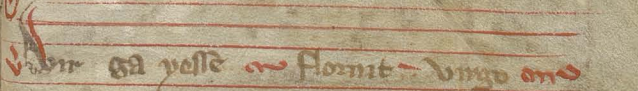 Vir ga yesse floruit virgo